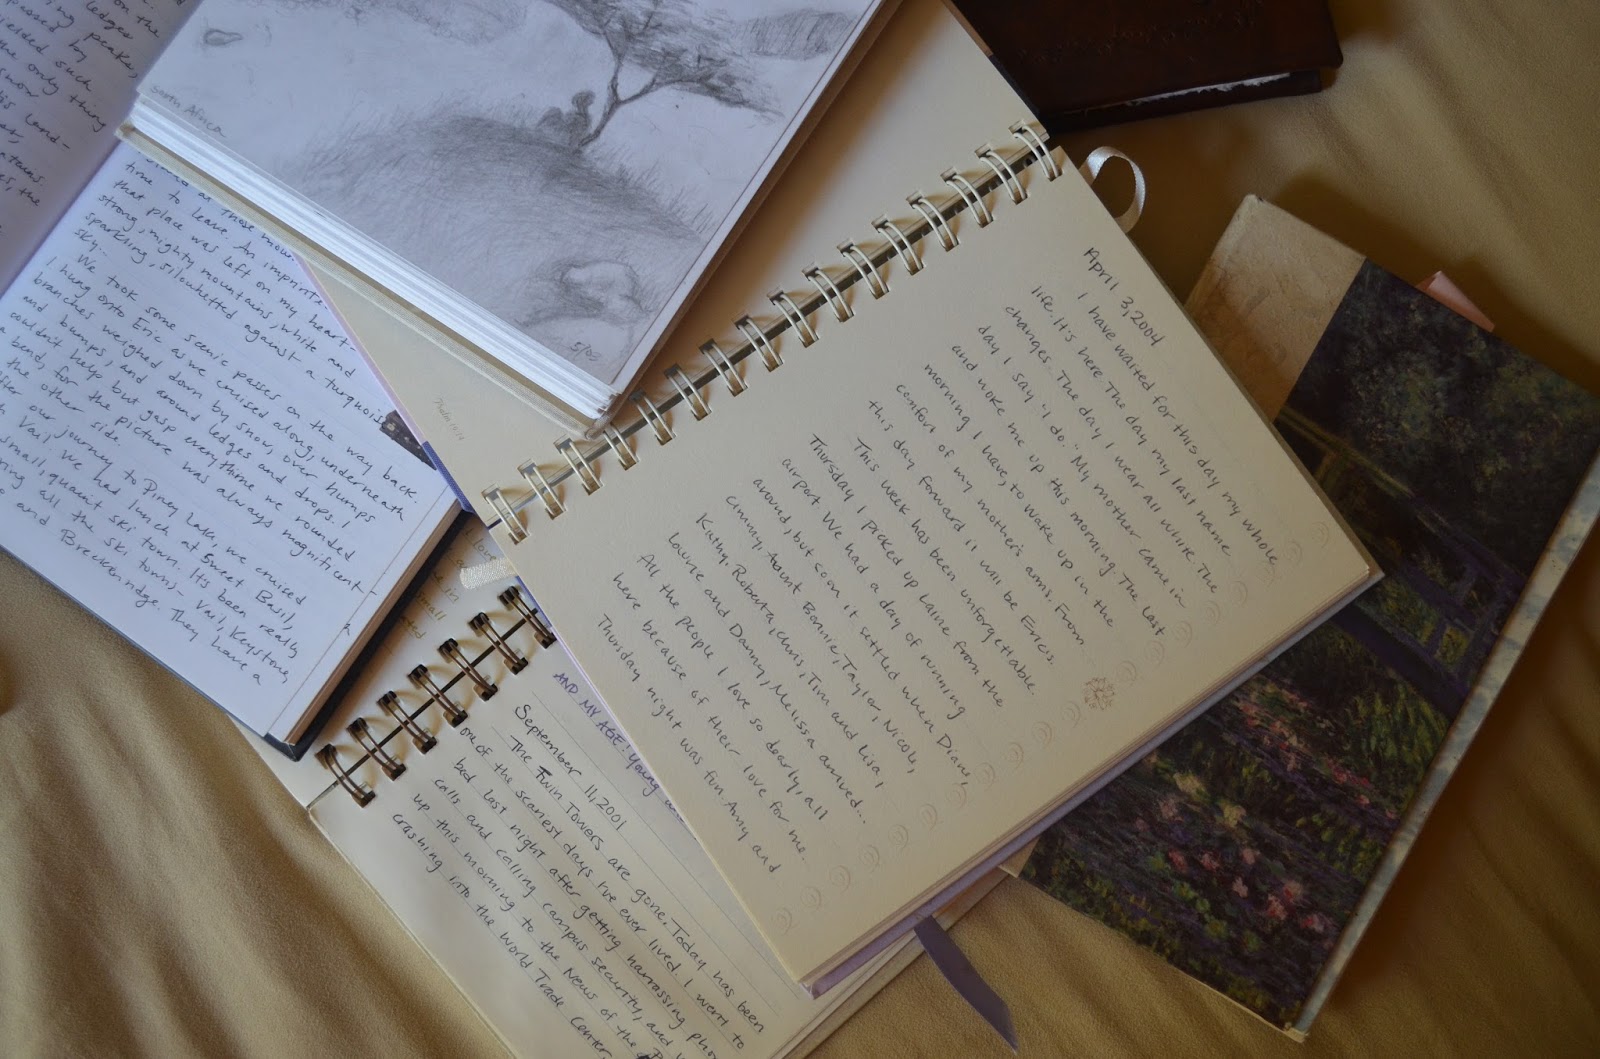 on the
ledges
peaks,
by
such
the only thing
snow
land-
the
South Africa
5/05
time to leave. An imprint
that place was left on my heart-
strong, mighty mountains, white and
sparkling, silouhetted against a turquoise
sky.
We took some scenic passes on the way back
I hung onto Eric as we cruised along, underneath
branches weighed down by snow, over humps
and bumps, and around ledges and drops. I
couldn't help but gasp everytime we rounded
a bend, for the picture was always magnificent-
the other side.
after our journey to Piney Lake, we cruised
Vail, we had lunch at Sweet Basil,
small, quaint ski town. It's been really
all the ski towns- Vail, Keystone,
and Breckenridge. They have a
April 3, 2004
I have waited for this day my whole
life. It's here. The day my last name
changes. The day I wear all white. The
day I say "I do." My mother came in
and woke me up this morning. The last
morning I have, to wake up in the
comfort of my mother's arms. From
this day forward it will be Eric's.
This week has been unforgettable.
Thursday I picked up Laine from the
airport. We had a day of running
around, but soon it settled when Diane,
Cinny, Aunt Bonnie, Taylor, Nicole,
Kathy, Roberta, Chris, Tim and Lisa,
Laurie and Danny, Melissa arrived...
All the people I love so dearly, all
here because of their love for me.
Thursday night was fun. Amy and
small
AND MY AGE! Young
September 11, 2001
The Twin Towers are gone. Today has been
one of the scariest days I've ever lived. I went to
bed last night after getting harrassing phone
calls and calling campus security, and
up this morning to the News of the
crashing into the World Trade Center.